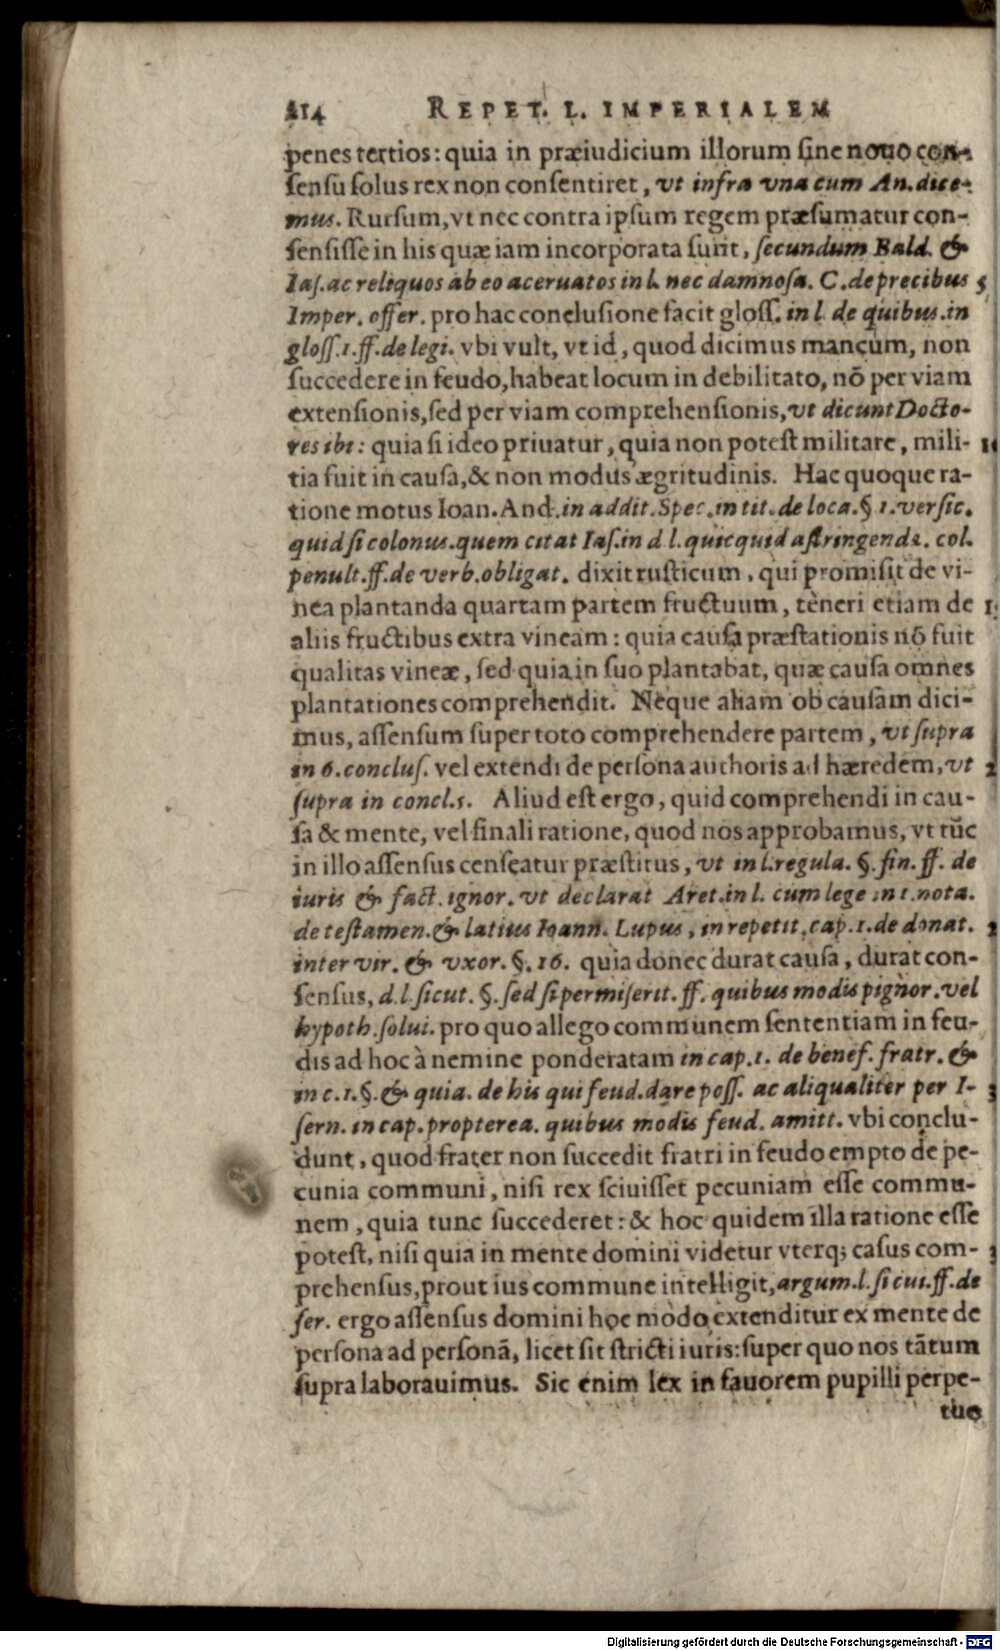 214 REPET. L. IMPERIALEM
penes tertios: quia in præiudicium illorum ſine nouo con-
ſenſu ſolus rex non conſentiret, vt infra vna cum An. dice-
mus. Rurſum, vt nec contra ipſum regem præſumatur con-
ſenſiſſe in his quæ iam incorporata ſunt, ſecundum Bald. &
Iaſ. ac reliquos ab eo aceruatos in l. nec damnoſa. C. de precibus 5
Imper. offer. pro hac concluſione facit gloſſ. in l. de quibus. in
gloſſ. 1. ff. de legi. vbi vult, vt id, quod dicimus mancum, non
ſuccedere in feudo, habeat locum in debilitato, nō per viam
extenſionis, ſed per viam comprehenſionis, vt dicunt Docto-
res ibi: quia ſi ideo priuatur, quia non poteſt militare, mili-
tia fuit in cauſa, & non modus ægritudinis. Hac quoque ra-
tione motus Ioan. And. in addit. Spec. in tit. de loca. § 1. verſic.
quid ſi colonus. quem citat Iaſ. in d l. quicquid aſtringendæ. col.
penult. ff. de verb. obligat. dixit ruſticum, qui promiſit de vi-
nea plantanda quartam partem fructuum, teneri etiam de
aliis fructibus extra vineam: quia cauſa præſtationis nō fuit
qualitas vineæ, ſed quia in ſuo plantabat, quæ cauſa omnes
plantationes comprehendit. Neque aliam ob cauſam dici-
mus, aſſenſum ſuper toto comprehendere partem, vt ſupra
in 6. concluſ. vel extendi de perſona authoris ad hæredem, vt
ſupra in concl. 5. Aliud eſt ergo, quid comprehendi in cau-
ſa & mente, vel finali ratione, quod nos approbamus, vt tūc
in illo aſſenſus cenſeatur præſtitus, vt in l. regula. §. fin. ff. de
iuris & fact. ignor. vt declarat Aret. in l. cum lege in 1. nota.
de teſtamen. & latius Ioann. Lupus, in repetit. cap. 1. de donat.
inter vir. & vxor. §. 16. quia donec durat cauſa, durat con-
ſenſus, d. l. ſicut. §. ſed ſi permiſerit. ff. quibus modis pignor. vel
hypoth. ſolui. pro quo allego communem ſententiam in feu-
dis ad hoc à nemine ponderatam in cap. 1. de benef. fratr. &
in c. 1. §. & quia. de his qui feud. dare poſſ. ac aliqualiter per I-
ſern. in cap. propterea. quibus modis feud. amitt. vbi conclu-
dunt, quod frater non ſuccedit fratri in feudo empto de pe-
cunia communi, niſi rex ſciuiſſet pecuniam eſſe commu-
nem, quia tunc ſuccederet: & hoc quidem illa ratione eſſe
poteſt, niſi quia in mente domini videtur vterq; caſus com-
prehenſus, prout ius commune intelligit, argum. l. ſicut. ff. de
ſer. ergo aſſenſus domini hoc modo extenditur ex mente de
perſona ad perſonā, licet ſit ſtricti iuris: ſuper quo nos tātum
ſupra laborauimus. Sic enim lex in fauorem pupilli perpe-
tuo
Digitalisierung gefördert durch die Deutsche Forschungsgemeinschaft - DFG